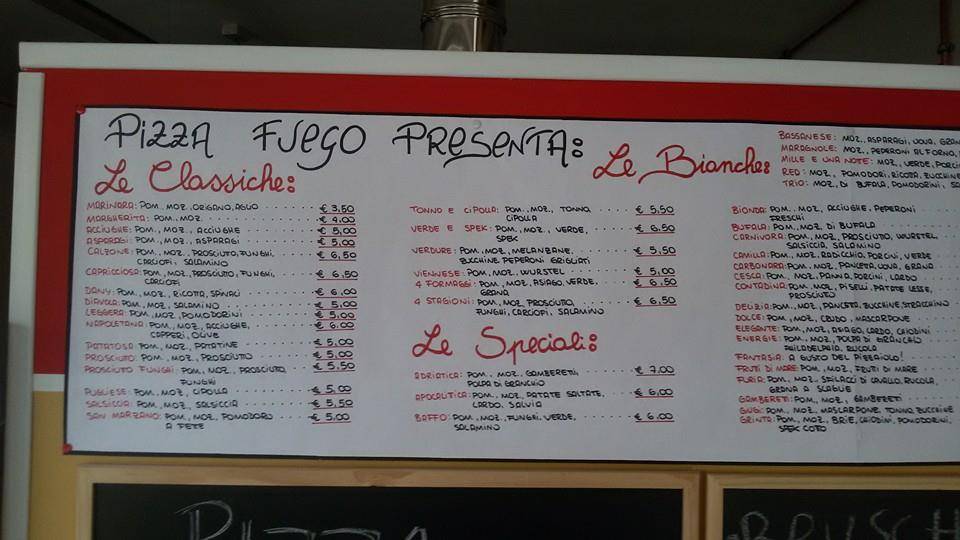 PIZZA FUEGO PRESENTA:
Le Classiche:
MARINARA: POM., MOZ., ORIGANO, AGLIO € 3,50
MARGHERITA: POM., MOZ. € 4,00
ACCIUGHE: POM., MOZ., ACCIUGHE € 5,00
ASPARAGI: POM., MOZ., ASPARAGI € 5,00
CALZONE: POM., MOZ., PROSCIUTO, FUNGHI, € 6,50
CARCIOFI, SALAMINO
CAPRICCIOSA: POM., MOZ., PROSCIUTO, FUNGHI, € 6,50
CARCIOFI
DANY: POM., MOZ., RICOTTA, SPINACI € 6,00
DIAVOLA: POM., MOZ., SALAMINO € 5,00
LEGGERA: POM., MOZ., POMODORINI € 5,00
NAPOLETANA: POM., MOZ., ACCIUGHE, € 6,00
CAPPERI, OLIVE
PATATOSA: POM., MOZ., PATATINE € 5,00
PROSCIUTO: POM., MOZ., PROSCIUTO € 5,00
PROSCIUTO FUNGHI: POM., MOZ., PROSCIUTO, € 5,50
FUNGHI
PUGLIESE: POM., MOZ., CIPOLLA € 5,00
SALSICCIA: POM., MOZ., SALSICCIA € 5,50
SAN MARZANO: POM., MOZ., POMODORO € 5,00
A FETE
TONNO E CIPOLLA: POM., MOZ., TONNO, € 5,50
CIPOLLA
VERDE E SPEK: POM., MOZ., VERDE, € 6,50
SPEK
VERDURE: POM., MOZ., MELANZANE, € 5,50
ZUCCHINE PEPERONI GRIGLIATI
VIENNESE: POM., MOZ., WURSTEL € 5,00
4 FORMAGGI: POM., MOZ., ASIAGO, VERDE, € 6,50
GRANA
4 STAGIONI: POM., MOZ., PROSCIUTO, € 6,50
FUNGHI, CARCIOFI, SALAMINO
Le Speciali:
ADRIATICA: POM., MOZ., GAMBERETTI, € 7,00
POLPA DI GRANCHIO
APOCALITICA: POM., MOZ., PATATE SALTATE, € 6,00
LARDO, SALVIA
BAFFO: POM., MOZ., FUNGHI, VERDE, € 6,00
SALAMINO
Le Bianche:
BASSANESE: MOZ., ASPARAGI, UOVA, GRAN
MARAGNOLE: MOZ., PEPERONI AL FORNO,
MILLE E UNA NOTE: MOZ., VERDE, PORCI
RED: MOZ., POMODORI, RICOTA, ZUCCHINE
TRIO: MOZ., DI BUFALA, POMODORINI, SA
BIONDA: POM., MOZ., ACCIUGHE, PEPERONI
FRESCHI
BUFALA: POM., MOZ. DI BUFALA
CARNIVORA: POM., MOZ., PROSCIUTO, WURSTEL,
SALSICCIA, SALAMINO
CAMILLA: POM., MOZ., RADICCHIO, PORCINI, VERDE
CARBONARA: POM., MOZ., PANCETA, UOVA, GRANA
CESCA: POM., MOZ., PANNA, PORCINI, LARDO
CONTADINA: POM., MOZ., PISELLI, PATATE LESSE,
PROSCIUTO
DELIZIA: POM., MOZ., PANCETA, ZUCCHINE STRACCHINO
DOLCE: POM., MOZ., CRUDO, MASCARPONE
ELEGANTE: POM., MOZ., ASIAGO, LARDO, CHIODINI
ENERGIE: POM., MOZ., POLPA DI GRANCHIO
PHILADELPHIA, RUCOLA
FANTASIA: A GUSTO DEL PIZZAIOLO!
FRUTI DI MARE: POM., MOZ., FRUTI DI MARE
FURIA: POM., MOZ., SFILACCI DI CAVALLO, RUCOLA,
GRANA A SCAGLIE
GAMBERETI: POM., MOZ., GAMBERETI
GIGI: POM., MOZ., MASCARPONE, TONNO, ZUCCHINE
GRINTA: POM., MOZ., BRIE, CHIODINI, POMODORINI,
SPEK COTO
PIZZA
BRUSCH